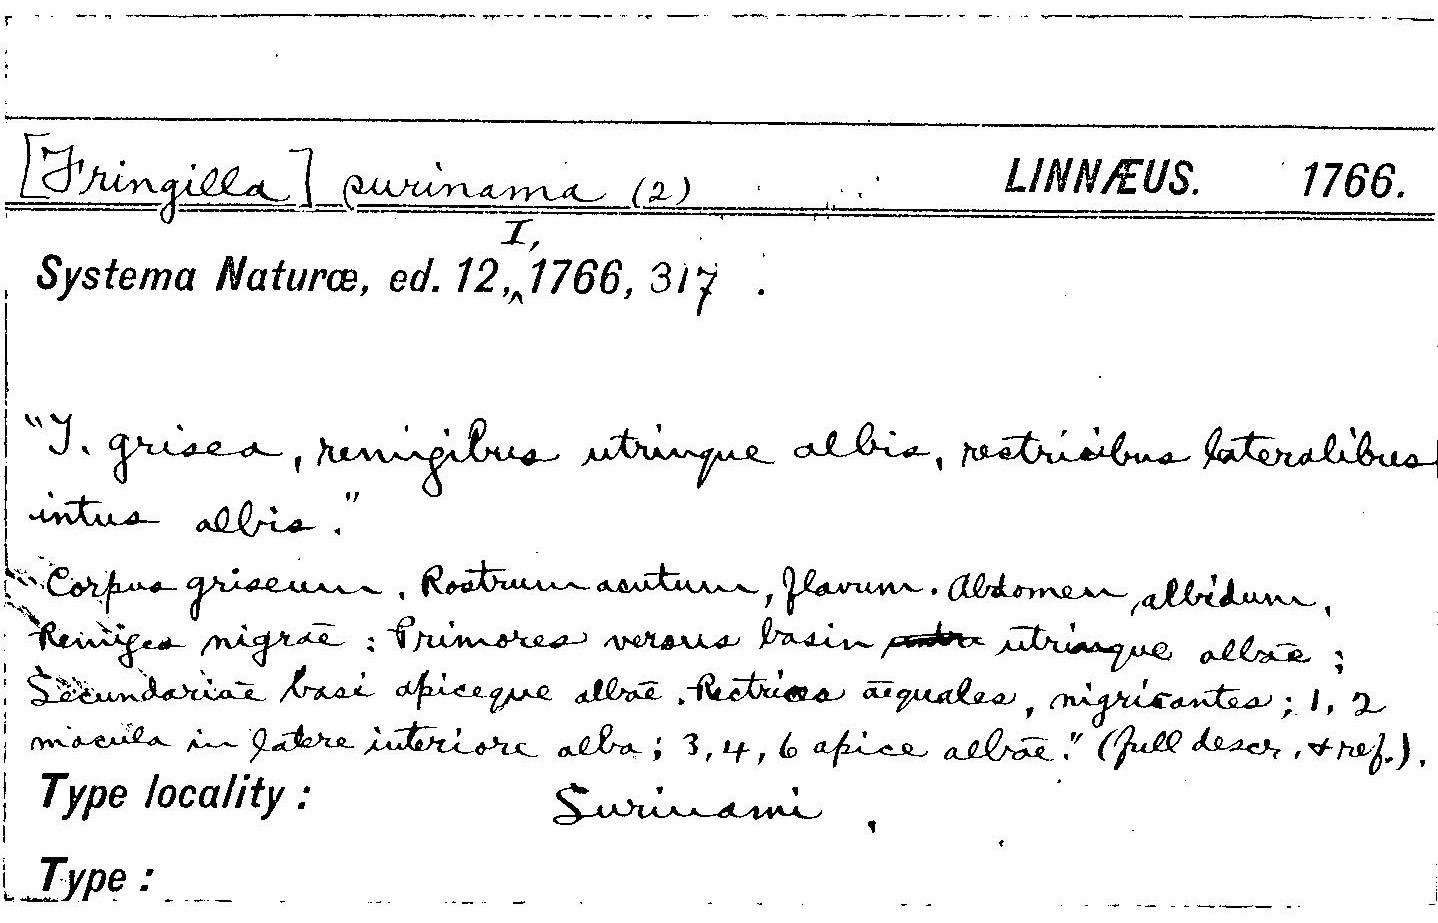 [Fringilla] surinama (2) LINNÆUS. 1766.
Systema Naturæ, ed. 12, I, 1766, 317.
"F. grisea, remigibus utrinque albis, rectricibus lateralibus
intus albis."
Corpus griseum. Rostrum acutum, flavum. Abdomen albidum.
Remiges nigræ: Primores versus basin utrinque albæ;
Secundariæ basi apiceque albæ. Rectrices æquales, nigricantes; 1, 2
macula in latere interiore alba; 3, 4, 6 apice albæ." (full descr. & ref.).
Type locality: Surinami.
Type: